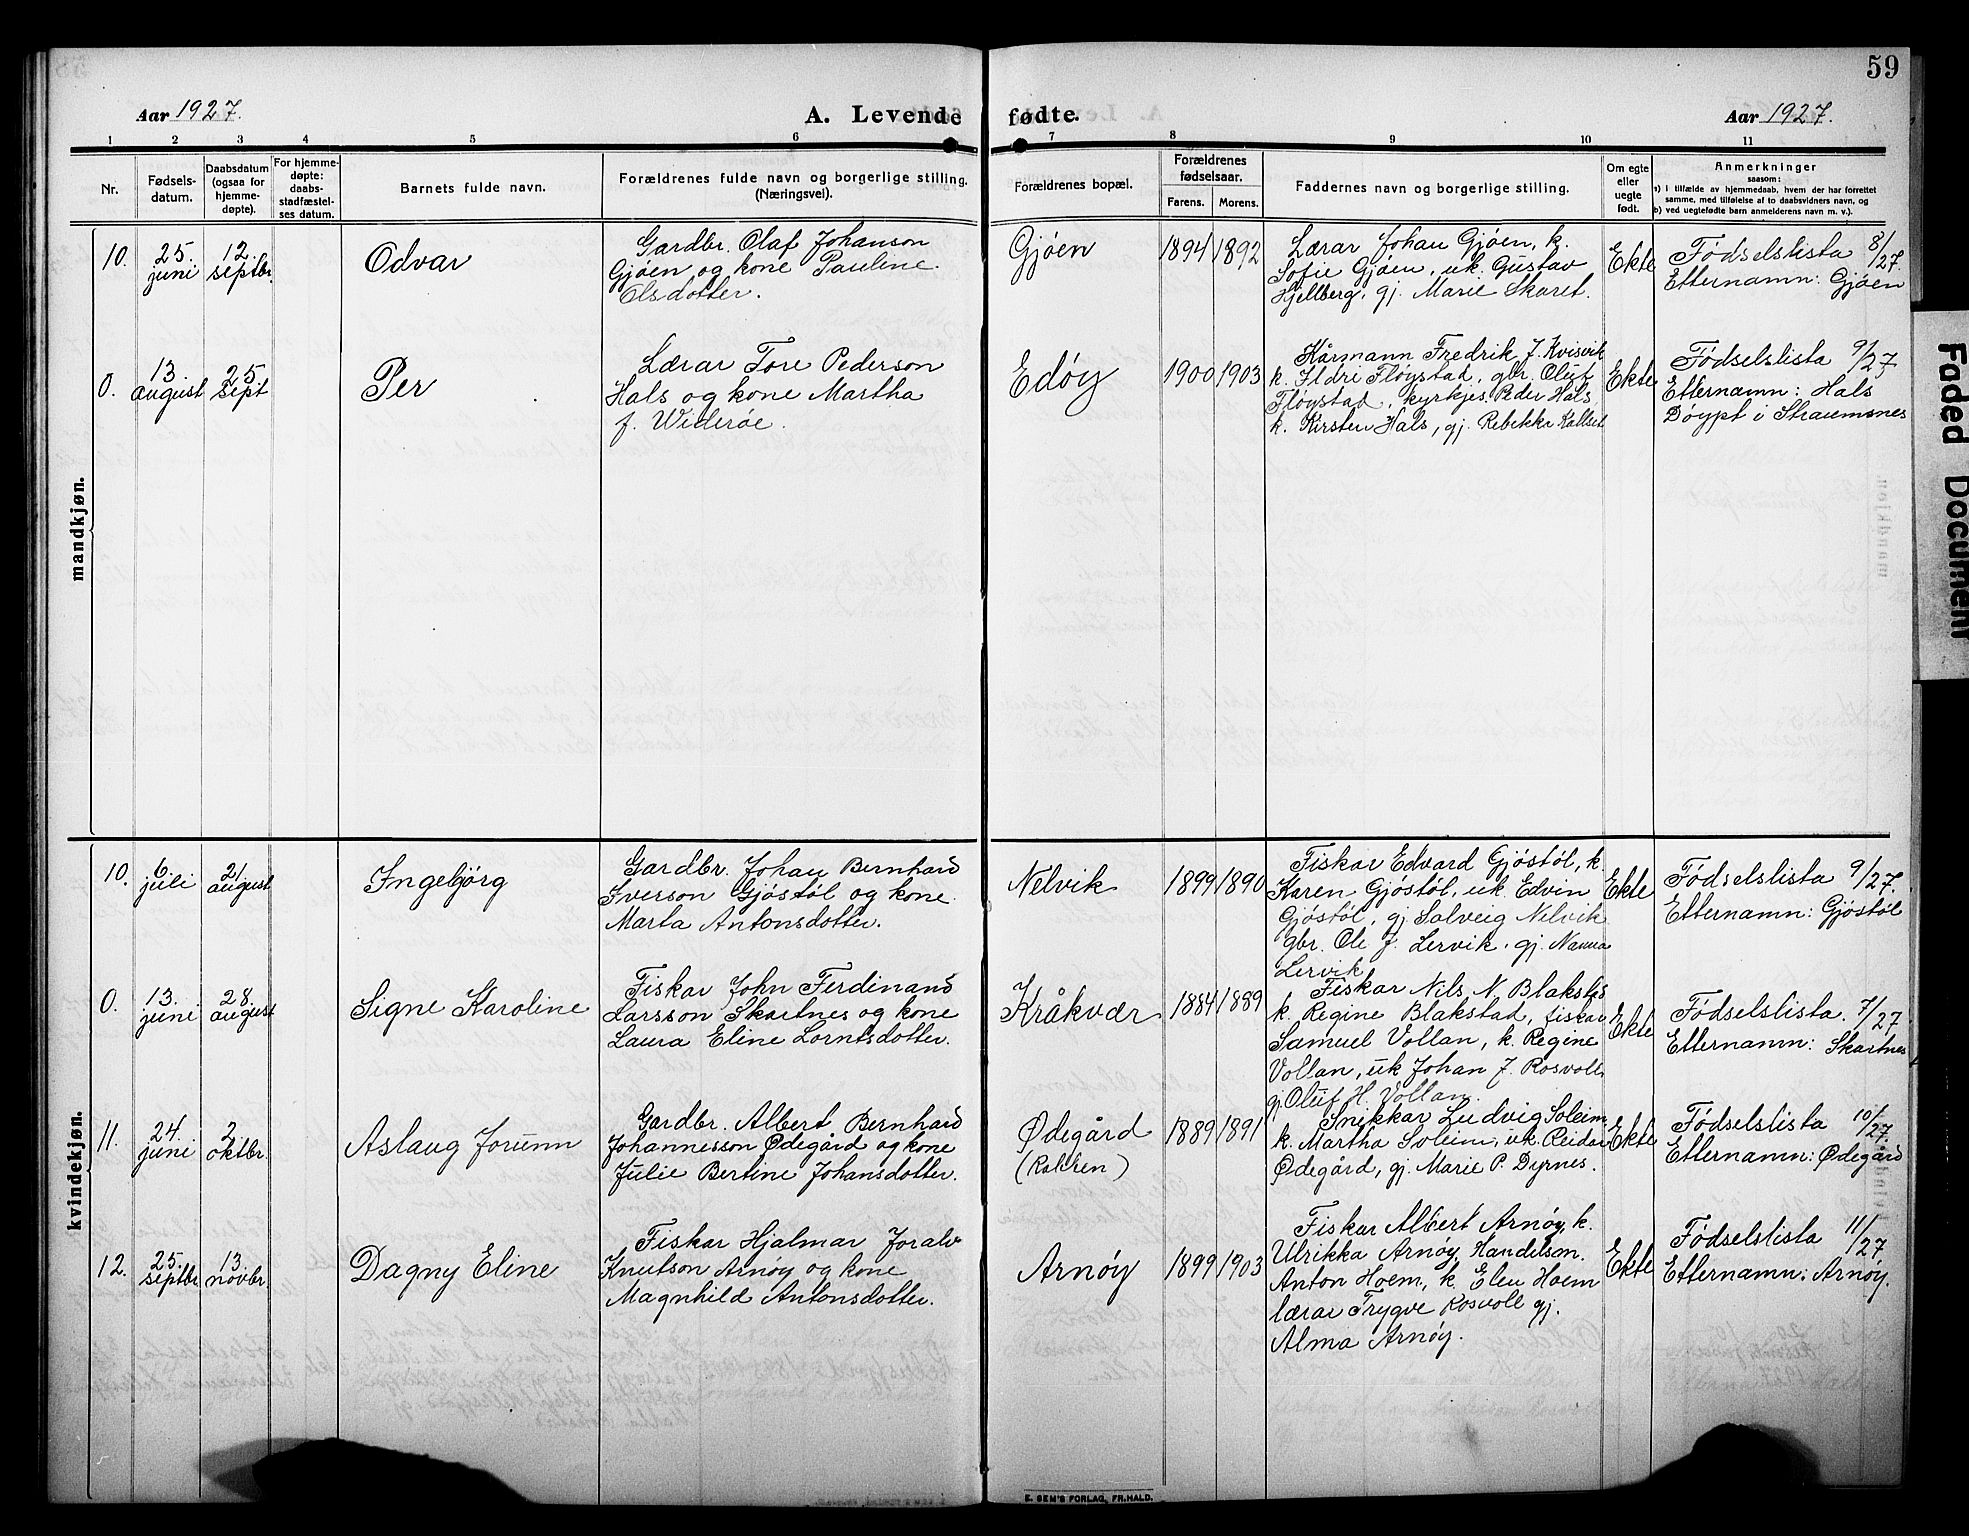 59
Aar 1927.
A. Levende fødte.
Aar 1927.
1 2 3 4 5 6 7 8 9 10 11
Nr.
Fødsels-
datum.
Daabsdatum
(ogsaa for
hjemme-
døpte).
For hjemme-
døpte:
daabs-
stadfæstel-
ses datum.
Barnets fulde navn.
Forældrenes fulde navn og borgerlige stilling.
(Næringsvei).
Forældrenes bopæl.
Forældrenes
fødselsaar.
Farens. Morens.
Faddernes navn og borgerlige stilling.
Om egte
eller
uegte
født.
Anmerkninger
saasom:
a) i tilfælde av hjemmedaab, hvem der har forrettet
samme, med tilføielse af to daabsvidners navn, og
b) ved uegtefødte barn anmelderens navn m. v.).
mandkjøn.
10.
25.
juni
12.
septbr.
Odvar
Gardbr. Olaf Johanson
Gjøen og kone Pauline
Olsdotter.
Gjøen
1894 1892
Lærar Johan Gjøen, k.
Sofie Gjøen, uk. Gustav
Hjellberg, gj. Marie Skaret.
Ekte
Fødselslista 8/27.
Etternamn: Gjøen
0.
13
august
25
sept
Per
Lærar Tore Pederson
Hals og kone Martha
f. Widerøe.
Edøy
1900 1903
Kårmann Fredrik J. Kvisvik
k. Ildri Fløystad, gbr. Oluf
Fløystad, kyrkjes. Peder Hals,
k. Kirsten Hals, gj. Rebekka Kallset
Ekte
Fødselslista 9/27
Etternamn: Hals
Døypt i Straumsnes
kvindekjøn.
10.
6.
juli
21.
august
Ingebjørg
Gardbr. Johan Bernhard
Iverson Gjøstøl og kone
Marta Antonsdotter.
Nelvik
1899 1890
Fiskar Edvard Gjøstøl, k.
Karen Gjøstøl, uk. Edvin
Gjøstøl, gj Solveig Nelvik
gbr. Ole J. Lervik, gj. Nanna
Lervik
Ekte
Fødselslista 9/27.
Etternamn: Gjøstøl
0.
13.
juni
28.
august
Signe Karoline
Fiskar John Ferdinand
Larsson Skartnes og kone
Laura Eline Lorntsdotter.
Kråkvær
1884 1889
Fiskar Nils N. Blakstad
k. Regine Blakstad, fiskar
Samuel Vollan, k. Regine
Vollan, uk Johan J. Rosvoll,
gj Oluf H. Vollan.
Ekte
Fødselslista. 7/27
Etternamn: Skartnes
11.
24.
juni
2.
oktbr.
Aslaug Jorunn
Gardbr. Albert Bernhard
Johannesson Ødegård og kone
Julie Bertine Johansdotter.
Ødegård
(Rokken)
1889 1891
Snikkar Ludvig Soleim
k. Martha Soleim, uk. Reidar
Ødegård, gj. Marie P. Dyrnes.
Ekte
Fødselslista 10/27.
Etternamn: Ødegård
12.
25.
septbr.
13.
novbr.
Dagny Eline
Fiskar Hjalmar Joralv
Knutson Arnøy og kone
Magnhild Antonsdotter.
Arnøy
1899 1903
Fiskar Albert Arnøy, k.
Ulrikka Arnøy, Handelsm.
Anton Hoem, k. Elen Hoem
lærar Trygve Rosvoll gj.
Alma Arnøy.
Ekte
Fødselslista 11/27
Etternamn: Arnøy.
E. SEM'S FORLAG, FR.HALD.
Faded Document